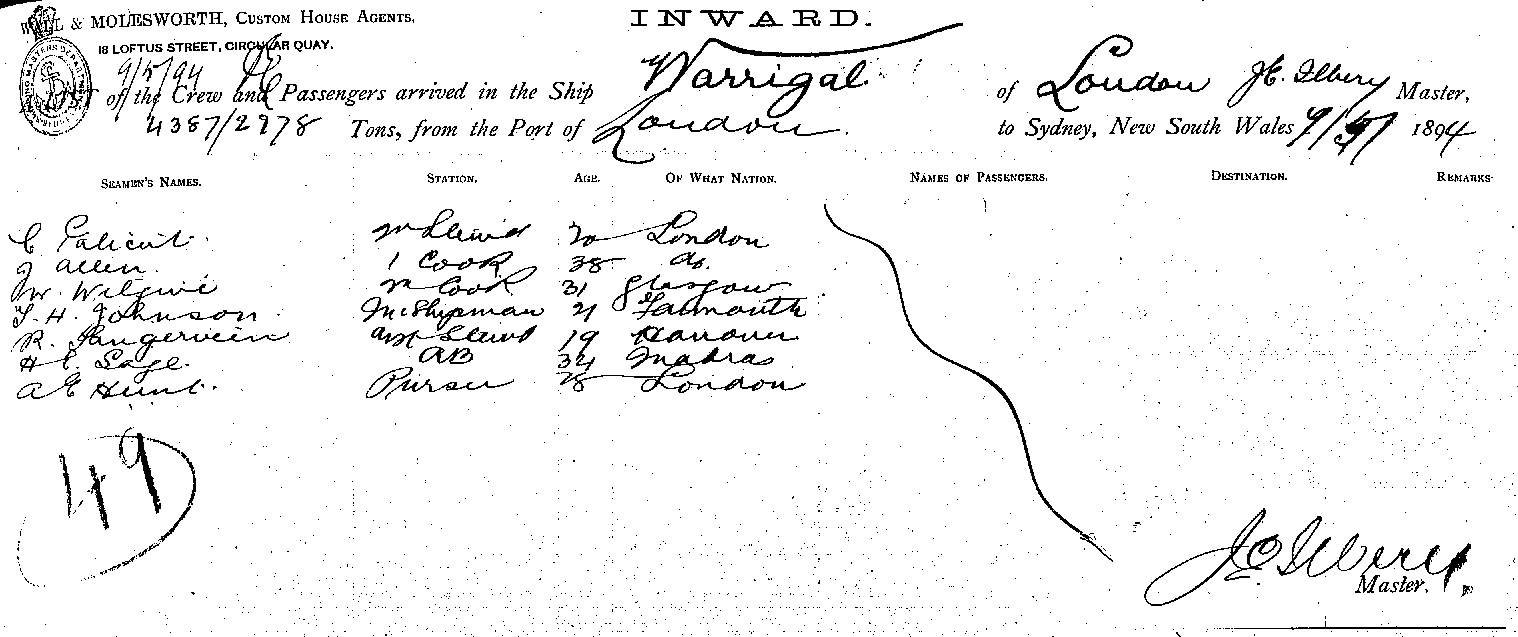 & MOLESWORTH, CUSTOM HOUSE AGENTS,
18 LOFTUS STREET, CIRCULAR QUAY.
INWARD.
9/5/94
of the Crew and Passengers arrived in the Ship Warrigal of London J E. Ilbery Master,
4387/2978 Tons, from the Port of London to Sydney, New South Wales 9/5/ 1894
SEAMEN'S NAMES. STATION. AGE. OF WHAT NATION. NAMES OF PASSENGERS. DESTINATION. REMARKS
C 20 London
J Allen. 1 Cook 38 do.
W. Cook 31 Glasgow
T. H. Johnson 21 Falmouth
R. 19 Hanover
H E. Sage. AB 34 Madras
A E Hunt. Purser 28 London
49
J E Ilbery
Master.